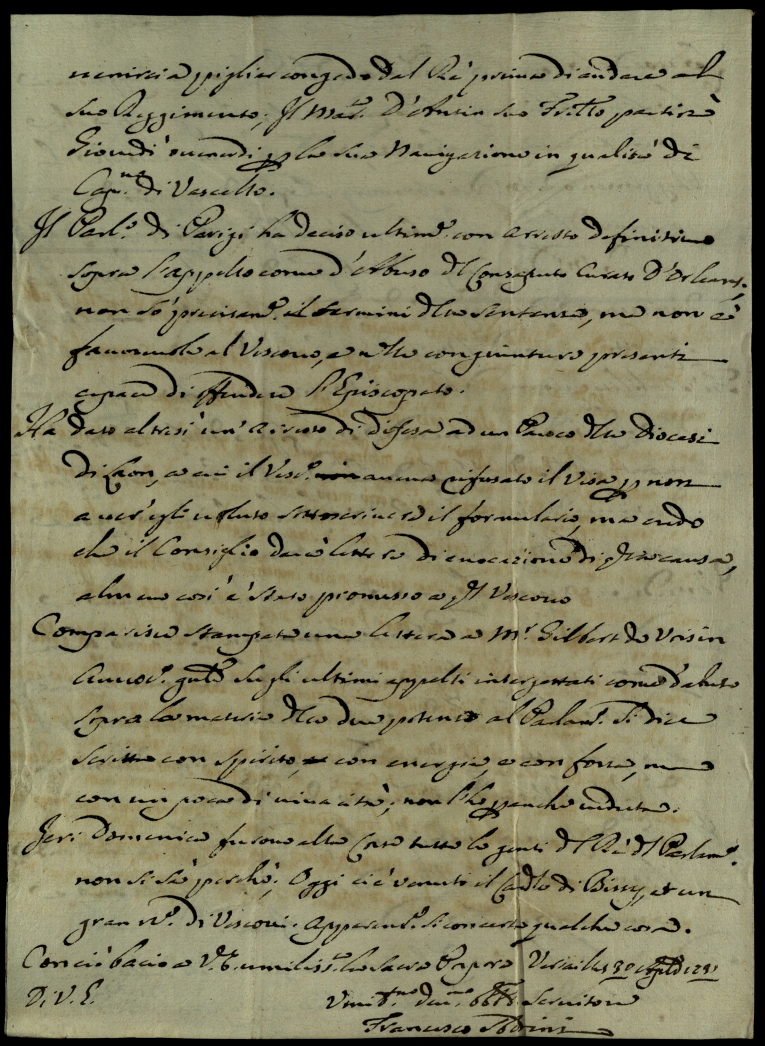 venirci a pigliar congedo dal Rè prima di andare al
suo Reggimento; Il Mar. D'Antin suo Frēllo partirà
Giovedì ò venerdì p la sua Navigazione in qualità di
Cap.no di Vascello.
Il Parl.o di Parigi ha deciso ultim.e con arresto definitivo
sopra l'appello come d'Abuso del Consaputo Curato D'Orleans,
non sò precisam.e il termini della sentenza, ma non è
favorevole al Vescovo, e nelle congiunture presenti
capace di offendere l'Episcopato.
Ha dato altresì un' arresto di difesa ad un Paroco della Diocesi
di Laon, a cui il Vesc.o aveva rifusato il Visa p non
aver' egli voluto sottoscrivere il formulario, ma credo
che il Consiglio darà lettere di evocazione di questa causa,
almeno così è stato promesso a quel Vescovo
Comparisce stampata una lettera a M.r Gilbert de Voisin
Avvoc.o gnāle sugli ultimi appelli interjettati come d'abuso
sopra la materia delle due potenze al Parlam.o Si dice
scritta con spirito, con energia, e con forza, ma
con un poco di vivacità; non l'ho p anche veduta.
Jeri Domenica furono alla Corte tutte le genti del Rè del Parlam.o
non si sà perchè; Oggi ci è venuto il Cardle di Bissy, et un
gran n.o di Vescovi. Apparen.te si concerta qualche cosa.
Con ciò bacio a V. E. umiliss.te la Sacra Porpora Versailles 30 Aple 1731
Di V. E.
Umil.mo Dev.mo Obb.mo Servitore
Francesco